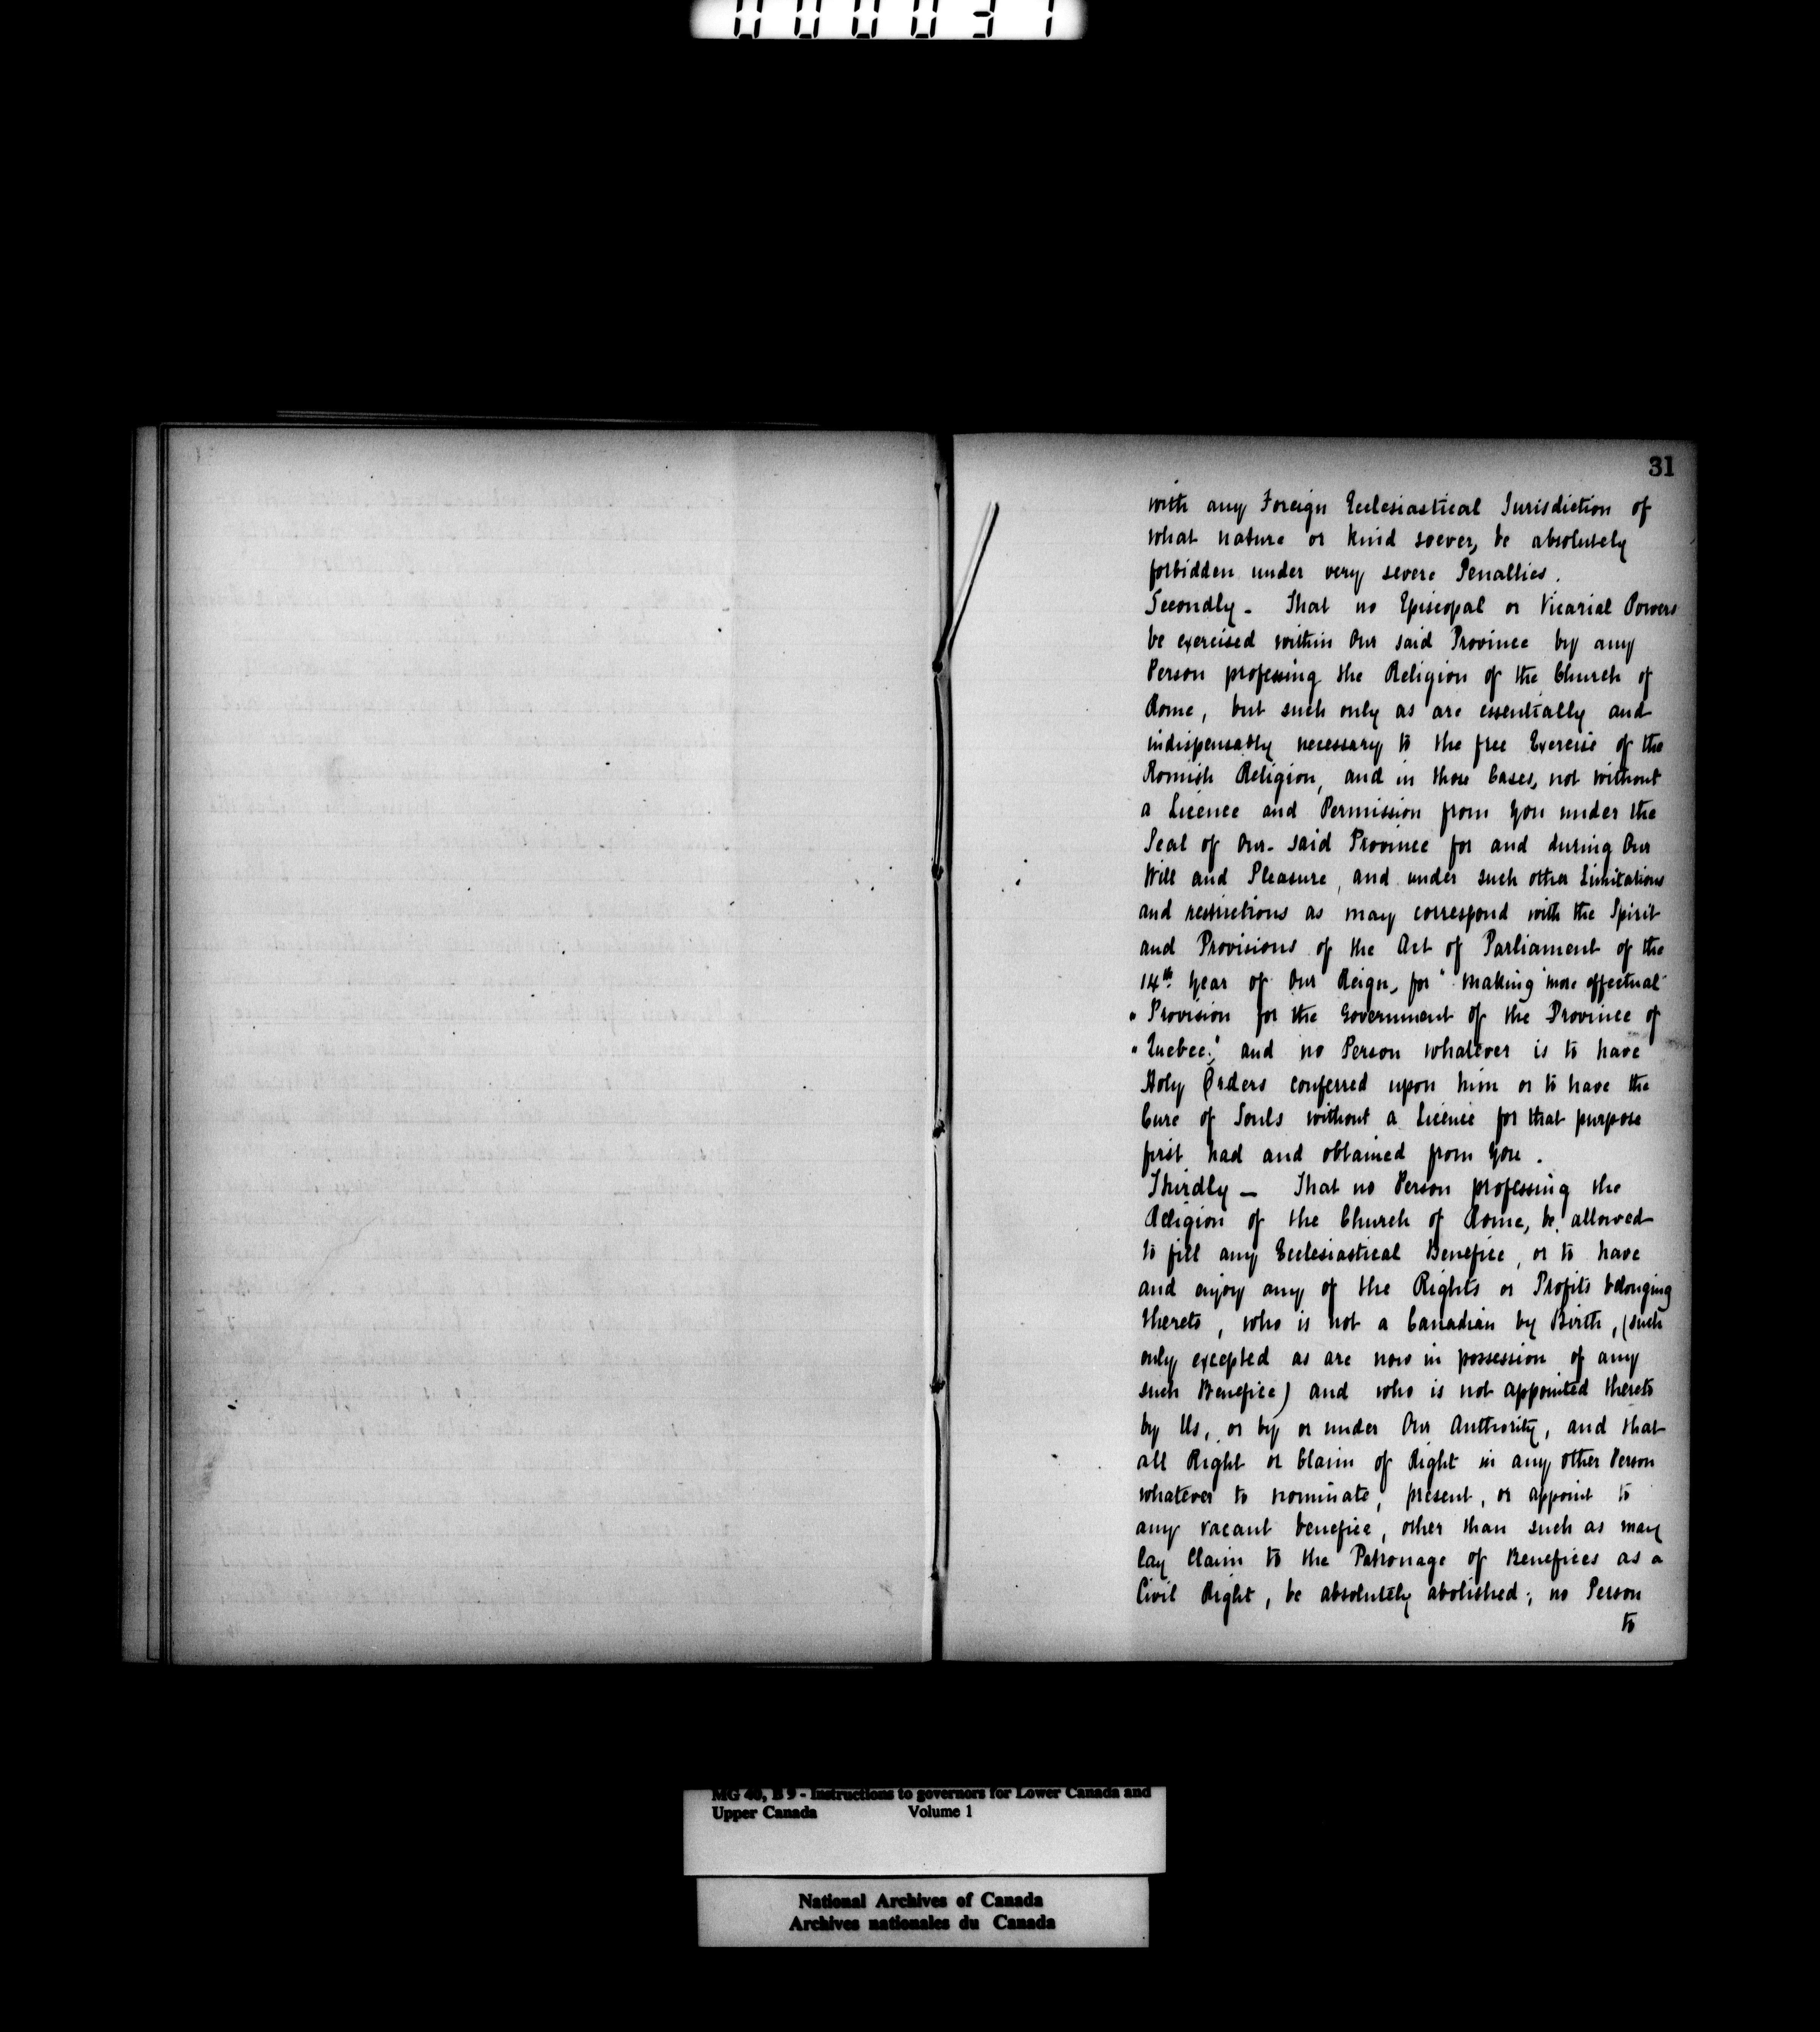 000031
31
with any Foreign Ecclesiastical Jurisdiction of
what nature or kind soever, be absolutely
forbidden under very severe Penalties.
Secondly - That no Episcopal or Vicarial Powers
be exercised within Our said Province by any
Person professing the Religion of the Church of
Rome, but such only as are essentially and
indispensably necessary to the free Exercise of the
Romish Religion, and in those Cases, not without
a Licence and Permission from you under the
Seal of Our said Province for and during Our
Will and Pleasure, and under such other Limitations
and restrictions as may correspond with the Spirit
and Provisions of the Act of Parliament of the
14th Year of Our Reign, for "making more effectual
" Provision for the Government of the Province of
" Quebec;" and no Person whatever is to have
Holy Orders conferred upon him or to have the
Cure of Souls without a Licence for that purpose
first had and obtained from you.
Thirdly - That no Person professing the
Religion of the Church of Rome, be allowed
to fill any Ecclesiastical Benefice, or to have
and enjoy any of the Rights or Profits belonging
thereto, who is not a Canadian by Birth, (such
only excepted as are now in possession of any
such Benefice) and who is not appointed thereto
by Us, or by or under Our Authority, and that
all Right or Claim of Right in any other Person
whatever to nominate, present, or appoint to
any vacant benefice, other than such as may
lay claim to the Patronage of Benefices as a
Civil Right, be absolutely abolished; no Person
to
MG 40, B 9 - Instructions to governors for Lower Canada and
Upper Canada Volume 1
National Archives of Canada
Archives nationales du Canada